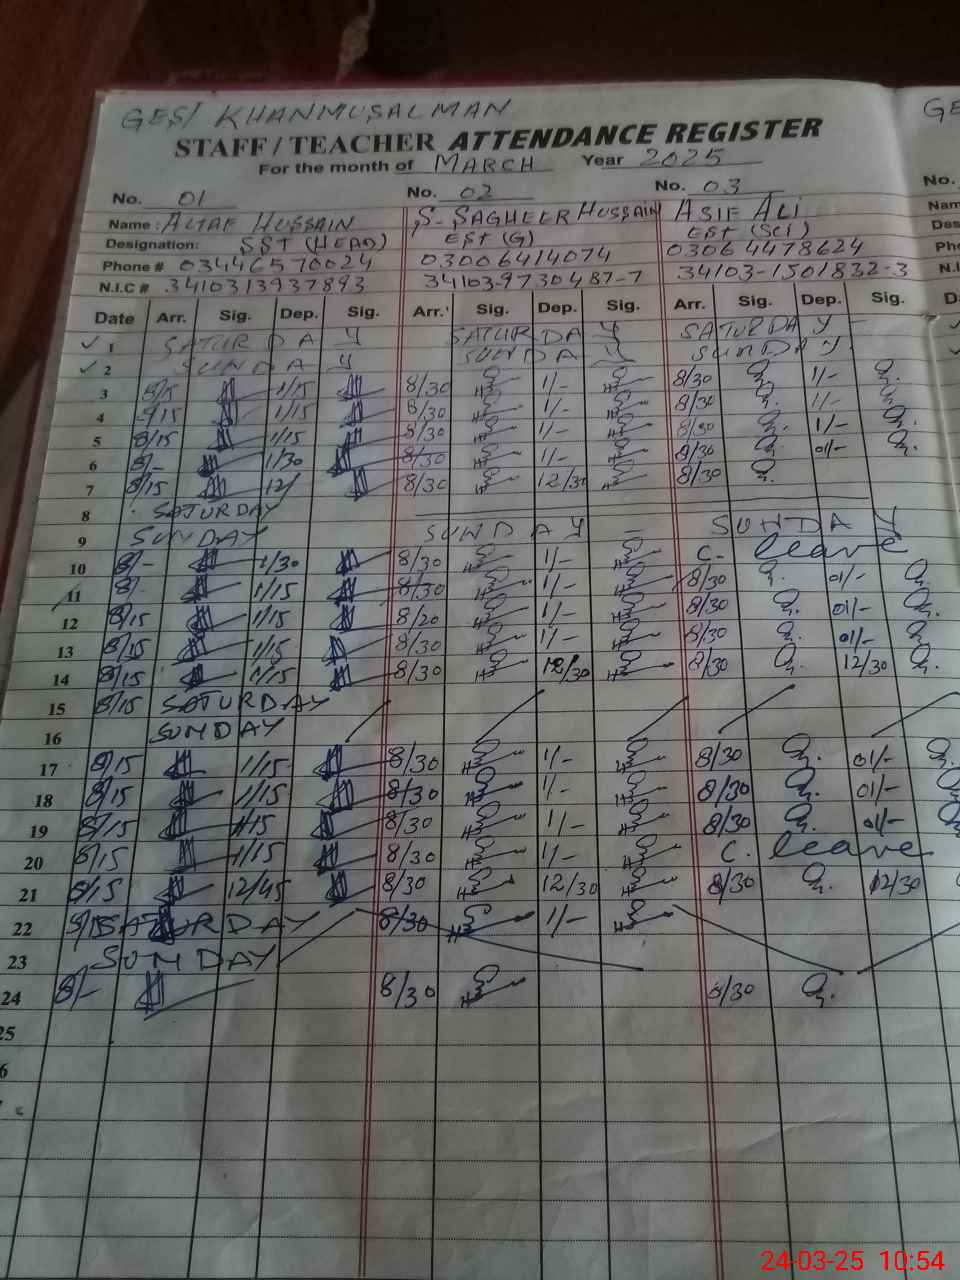 GES/ KHANMUSALMAN
STAFF/TEACHER ATTENDANCE REGISTER
For the month of MARCH Year 2025
No. 01 No. 02 No. 03 No.
Name: ALTAF HUSSAIN S. SAGHEER HUSSAIN ASIF ALI
Designation: SST (HEAD) EST (G) EST (SCI)
Phone # 03446570024 03006414074 03064478624
N.I.C # 3410313937893 34103-9730487-7 34103-1501832-3
Date Arr. Sig. Dep. Sig. Arr. Sig. Dep. Sig. Arr. Sig. Dep. Sig.
1 SATURDAY SATURDAY SATURDAY
2 SUNDAY SUNDAY SUNDAY
3 8/15 1/15 8/30 1/- 8/30 1/-
4 8/15 1/15 8/30 1/- 8/30 1/-
5 8/15 1/15 8/30 1/- 8/30 1/-
6 8/- 1/30 8/30 1/- 8/30 01/-
7 8/15 12/ 8/30 12/30 8/30
8 SATURDAY
9 SUNDAY SUNDAY SUNDAY
10 8/- 1/30 8/30 1/- C- leave
11 8/- 1/15 8/30 1/- 8/30 01/-
12 8/15 1/15 8/20 1/- 8/30 01/-
13 8/15 1/15 8/30 1/- 8/30 01/-
14 8/15 1/15 8/30 12/30 8/30 12/30
15 8/15 SATURDAY
16 SUNDAY
17 8/15 1/15 8/30 1/- 8/30 01/-
18 8/15 1/15 8/30 1/- 8/30 01/-
19 8/15 1/15 8/30 1/- 8/30 01/-
20 8/15 1/15 8/30 1/- C. leave
21 8/15 12/45 8/30 12/30 8/30 12/30
22 8/15 SATURDAY 8/30 1/-
23 SUNDAY
24 8/- 8/30 8/30
25
24-03-25 10:54